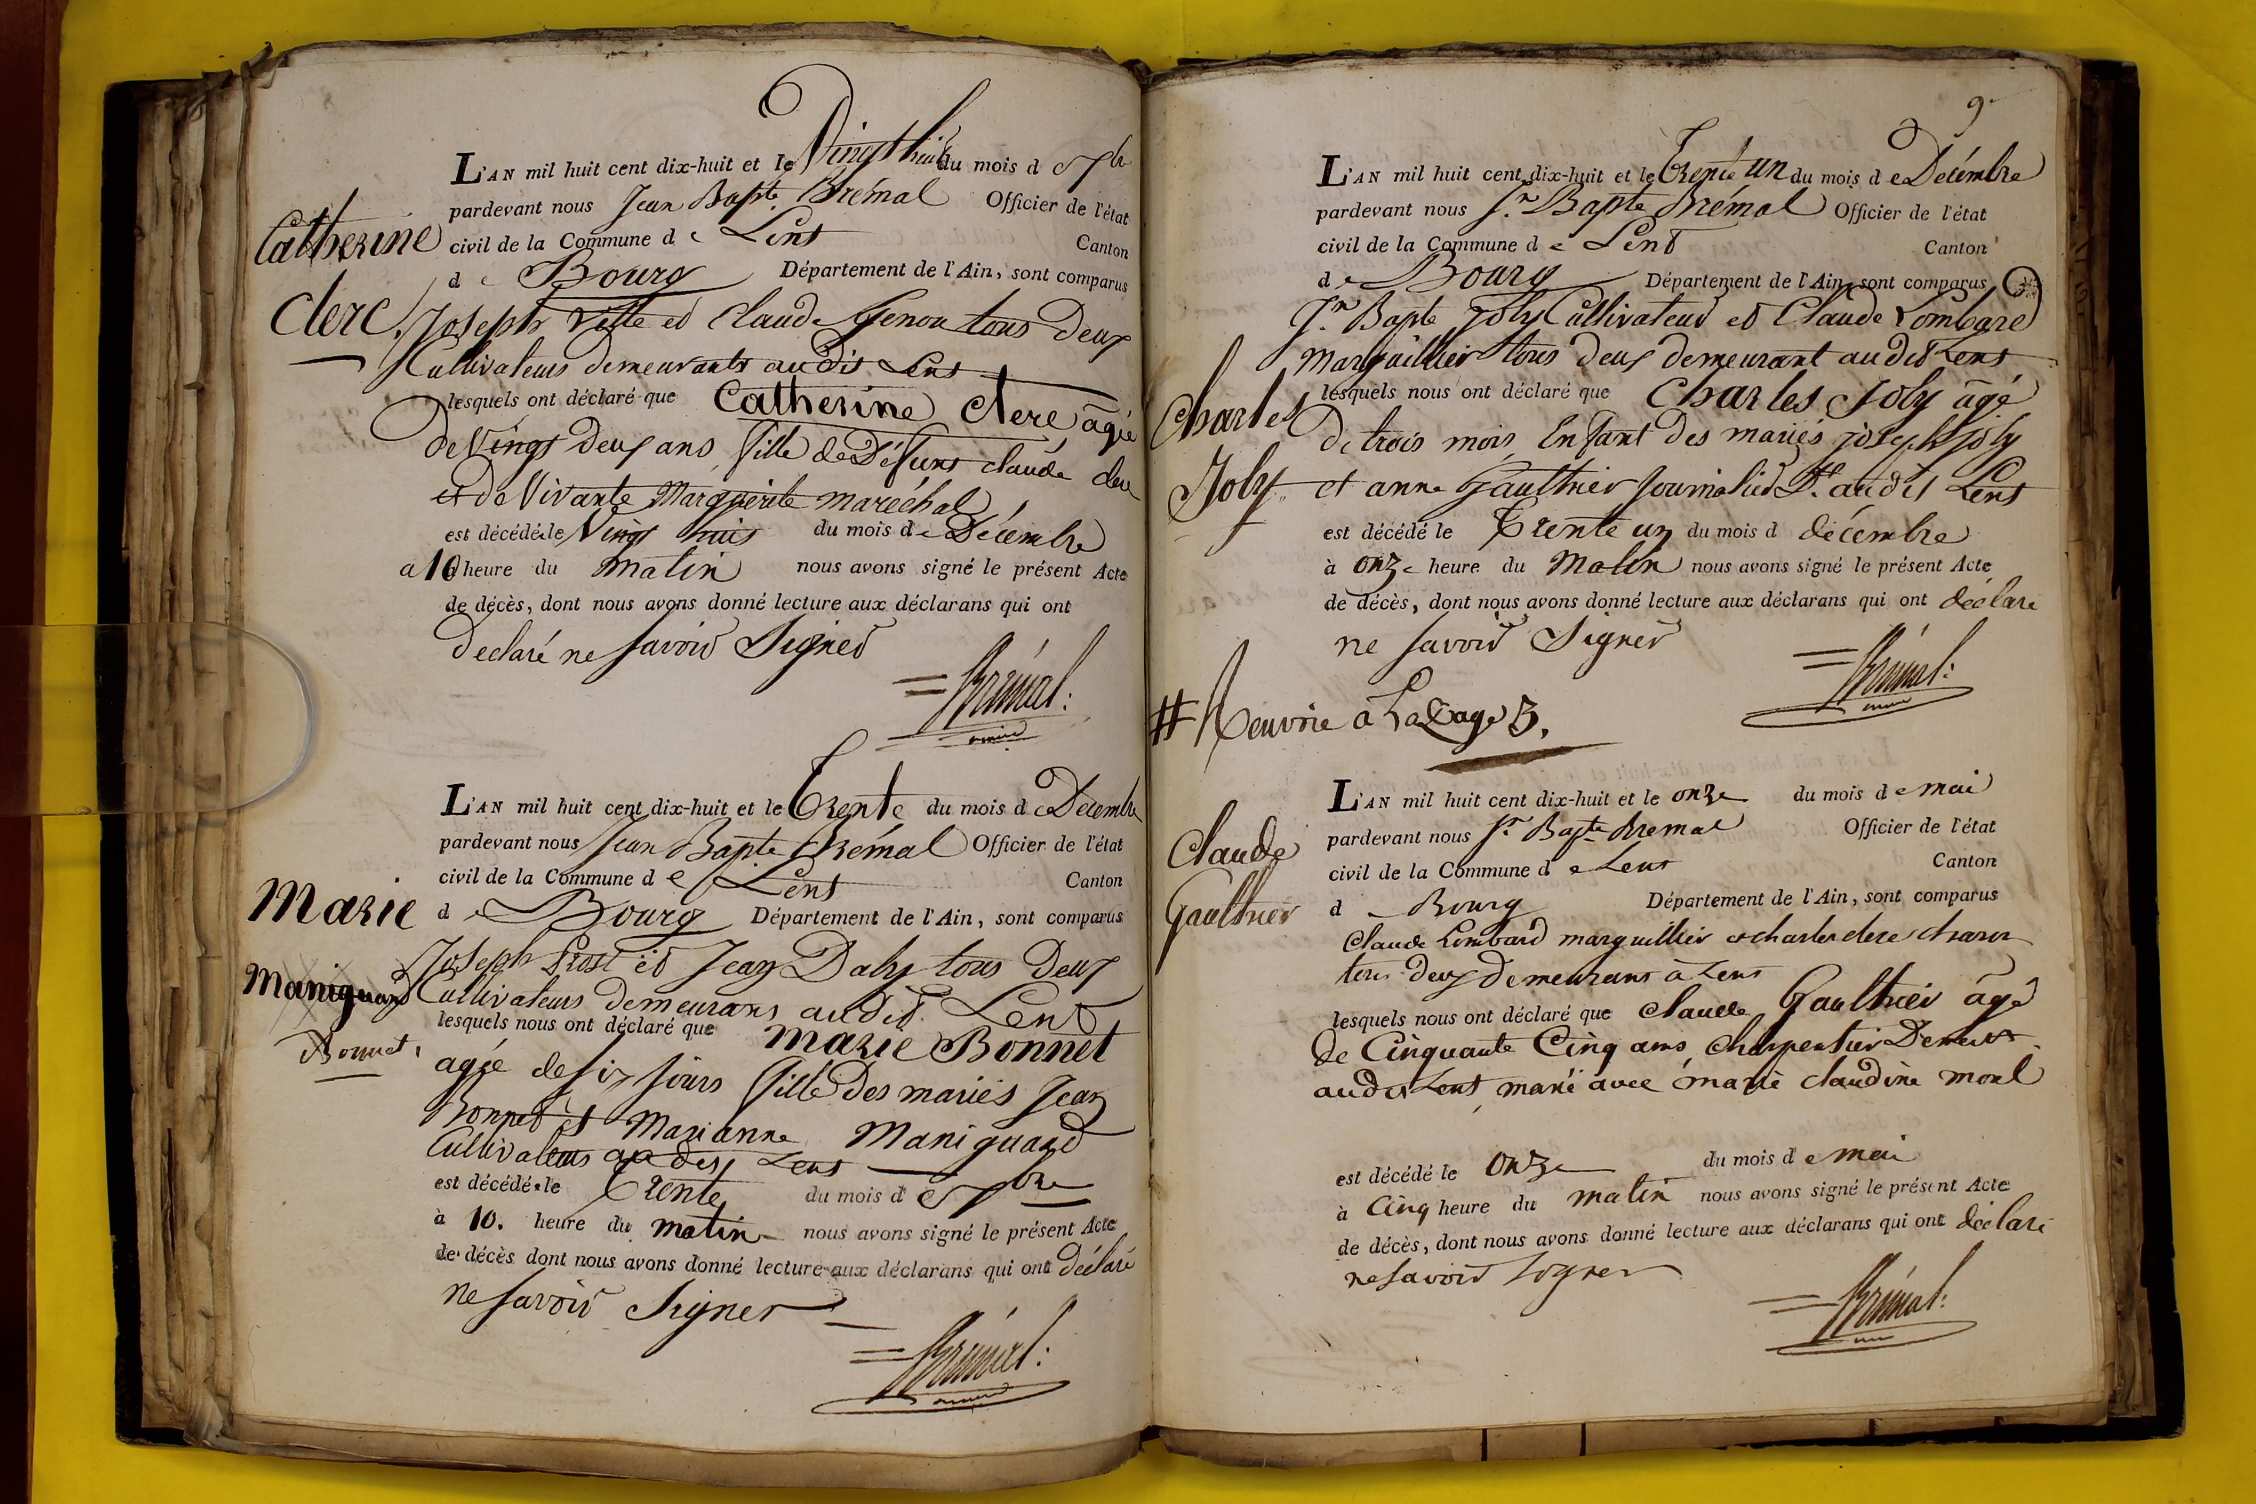 L'AN mil huit cent dix-huit et le Vingt huit du mois d e Xbre
pardevant nous Jean Bapte. Brémal Officier de l'état
civil de la Commune d e Lent Canton
d e Bourg Département de l'Ain, sont comparus
Catherine
Clerc.
Joseph et Claude tous Deux
Cultivateurs demeurants audit Lent
lesquels ont déclaré que Catherine Clerc âgée
de Vingt Deux ans, fille de Défunt Claude Clerc
et de Vivante Marguerite Maréchal
est décédée le Vingt huit du mois d e Décembre
a 10 heure du matin nous avons signé le présent Acte
de décès, dont nous avons donné lecture aux déclarans qui ont
Declaré ne Savoir Signer
Brémal:
L'AN mil huit cent dix-huit et le Trente du mois d e Décembre
pardevant nous Jean Bapte Brémal Officier de l'état
civil de la Commune d e Lent Canton
d e Bourg Département de l'Ain, sont comparus
Marie
Maniquand
Bonnet.
Joseph Prost et Jean Daby tous Deux
Cultivateurs demeurans audit Lent
lesquels nous ont déclaré que Marie Bonnet
agée de six jours fille Des mariés Jean
Bonnet et Marianne Maniquand
Cultivateurs Lent
est décédée le Trente du mois d e Xbre
à 10. heure du matin nous avons signé le présent Acte
de décès dont nous avons donné lecture aux déclarans qui ont Déclaré
ne Savoir Signer
Brémal:
9
L'AN mil huit cent dix-huit et le Trente un du mois d e Décembre
pardevant nous Jn. Bapte Brémal Officier de l'état
civil de la Commune d e Lent Canton
d e Bourg Département de l'Ain, sont comparus
Jn. Bapte Joly Cultivateur et Claude Lombard
Marguillier tous deux demeurant audit Lent
Charles
Joly
lesquels nous ont déclaré que Charles Joly âgé
De trois mois, Enfant Des mariés joseph joly
et anne Gaulthier Journalier Dt. audit Lent
est décédé le Trente un du mois d décembre
à onze heure du Matin nous avons signé le présent Acte
de décès, dont nous avons donné lecture aux déclarans qui ont déclaré
ne Savoir Signer
Brémal:
# Renvoie à La page 3.
L'AN mil huit cent dix-huit et le onze du mois d e mai
pardevant nous Jn. Bapte Bremal Officier de l'état
civil de la Commune d e Lent Canton
d e Bourg Département de l'Ain, sont comparus
Claude
Gaulthier
Claude Lombard marguillier et charles clerc charon
tous deux demeurans à Lent
lesquels nous ont déclaré que Claude Gaulthier âgé
de Cinquante Cinq ans, Charpentier Demeurt.
audit Lent, marié avec marie claudine morel
est décédé le onze du mois d e mai
à Cinq heure du matin nous avons signé le présent Acte
de décès, dont nous avons donné lecture aux déclarans qui ont déclaré
ne Savoir Signer
Brémal: